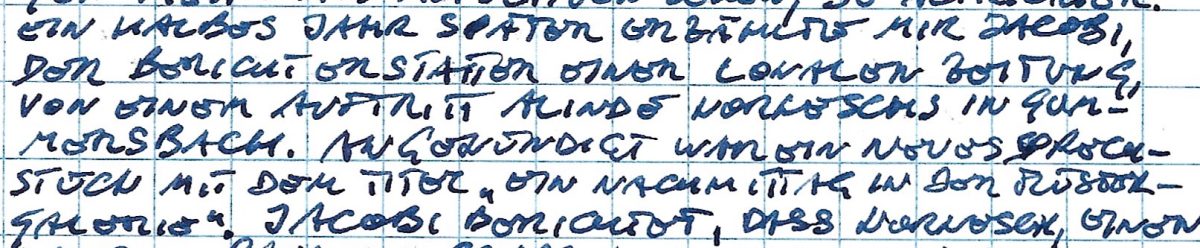 EIN HALBES JAHR SPÄTER ERZÄHLTE MIR JACOBI,
DER BERICHTERSTATTER EINER LOKALEN ZEITUNG,
VON EINEM AUFTRITT ALINDE KORNESCHS IN GUM-
MERSBACH. ANGEKÜNDIGT WAR EIN NEUES SPRECH-
STÜCK MIT DEM TITEL „EIN NACHMITTAG IN DER
GALERIE“. JACOBI BERICHTET, DASS EINEN